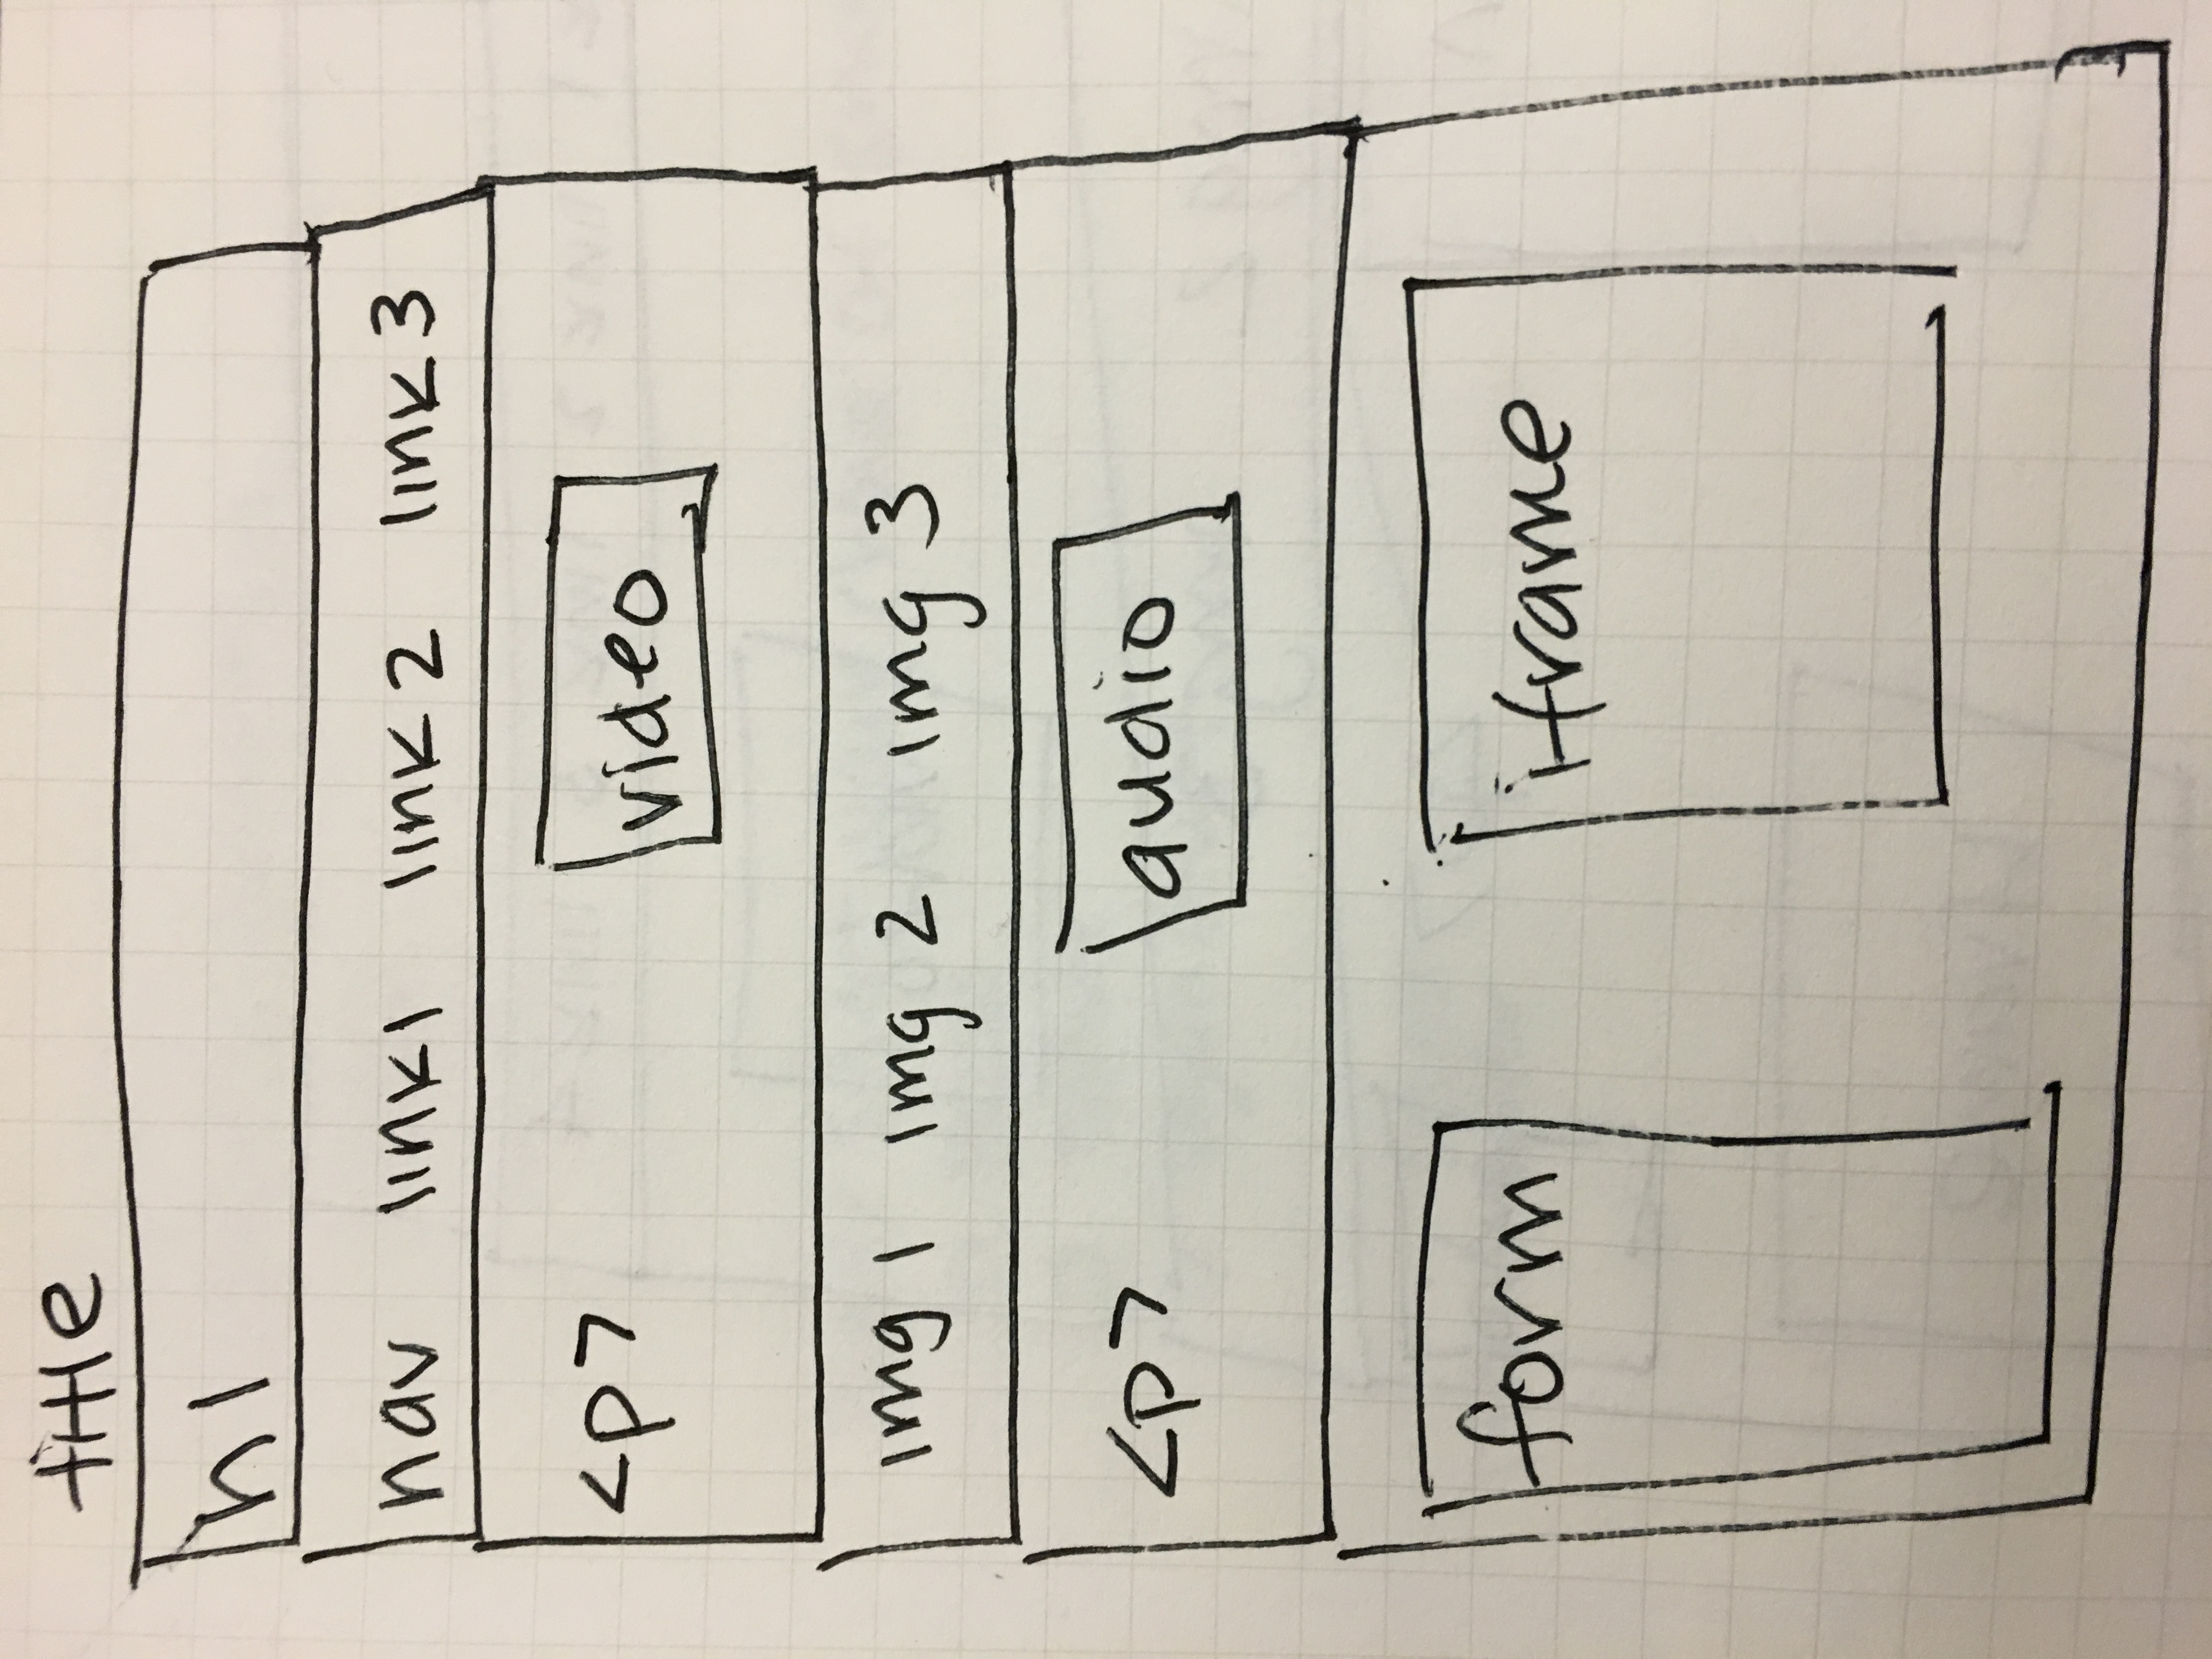 title
h1
nav link1 link 2 link 3
<p> video
img 1 img 2 img 3
<p> audio
form iframe